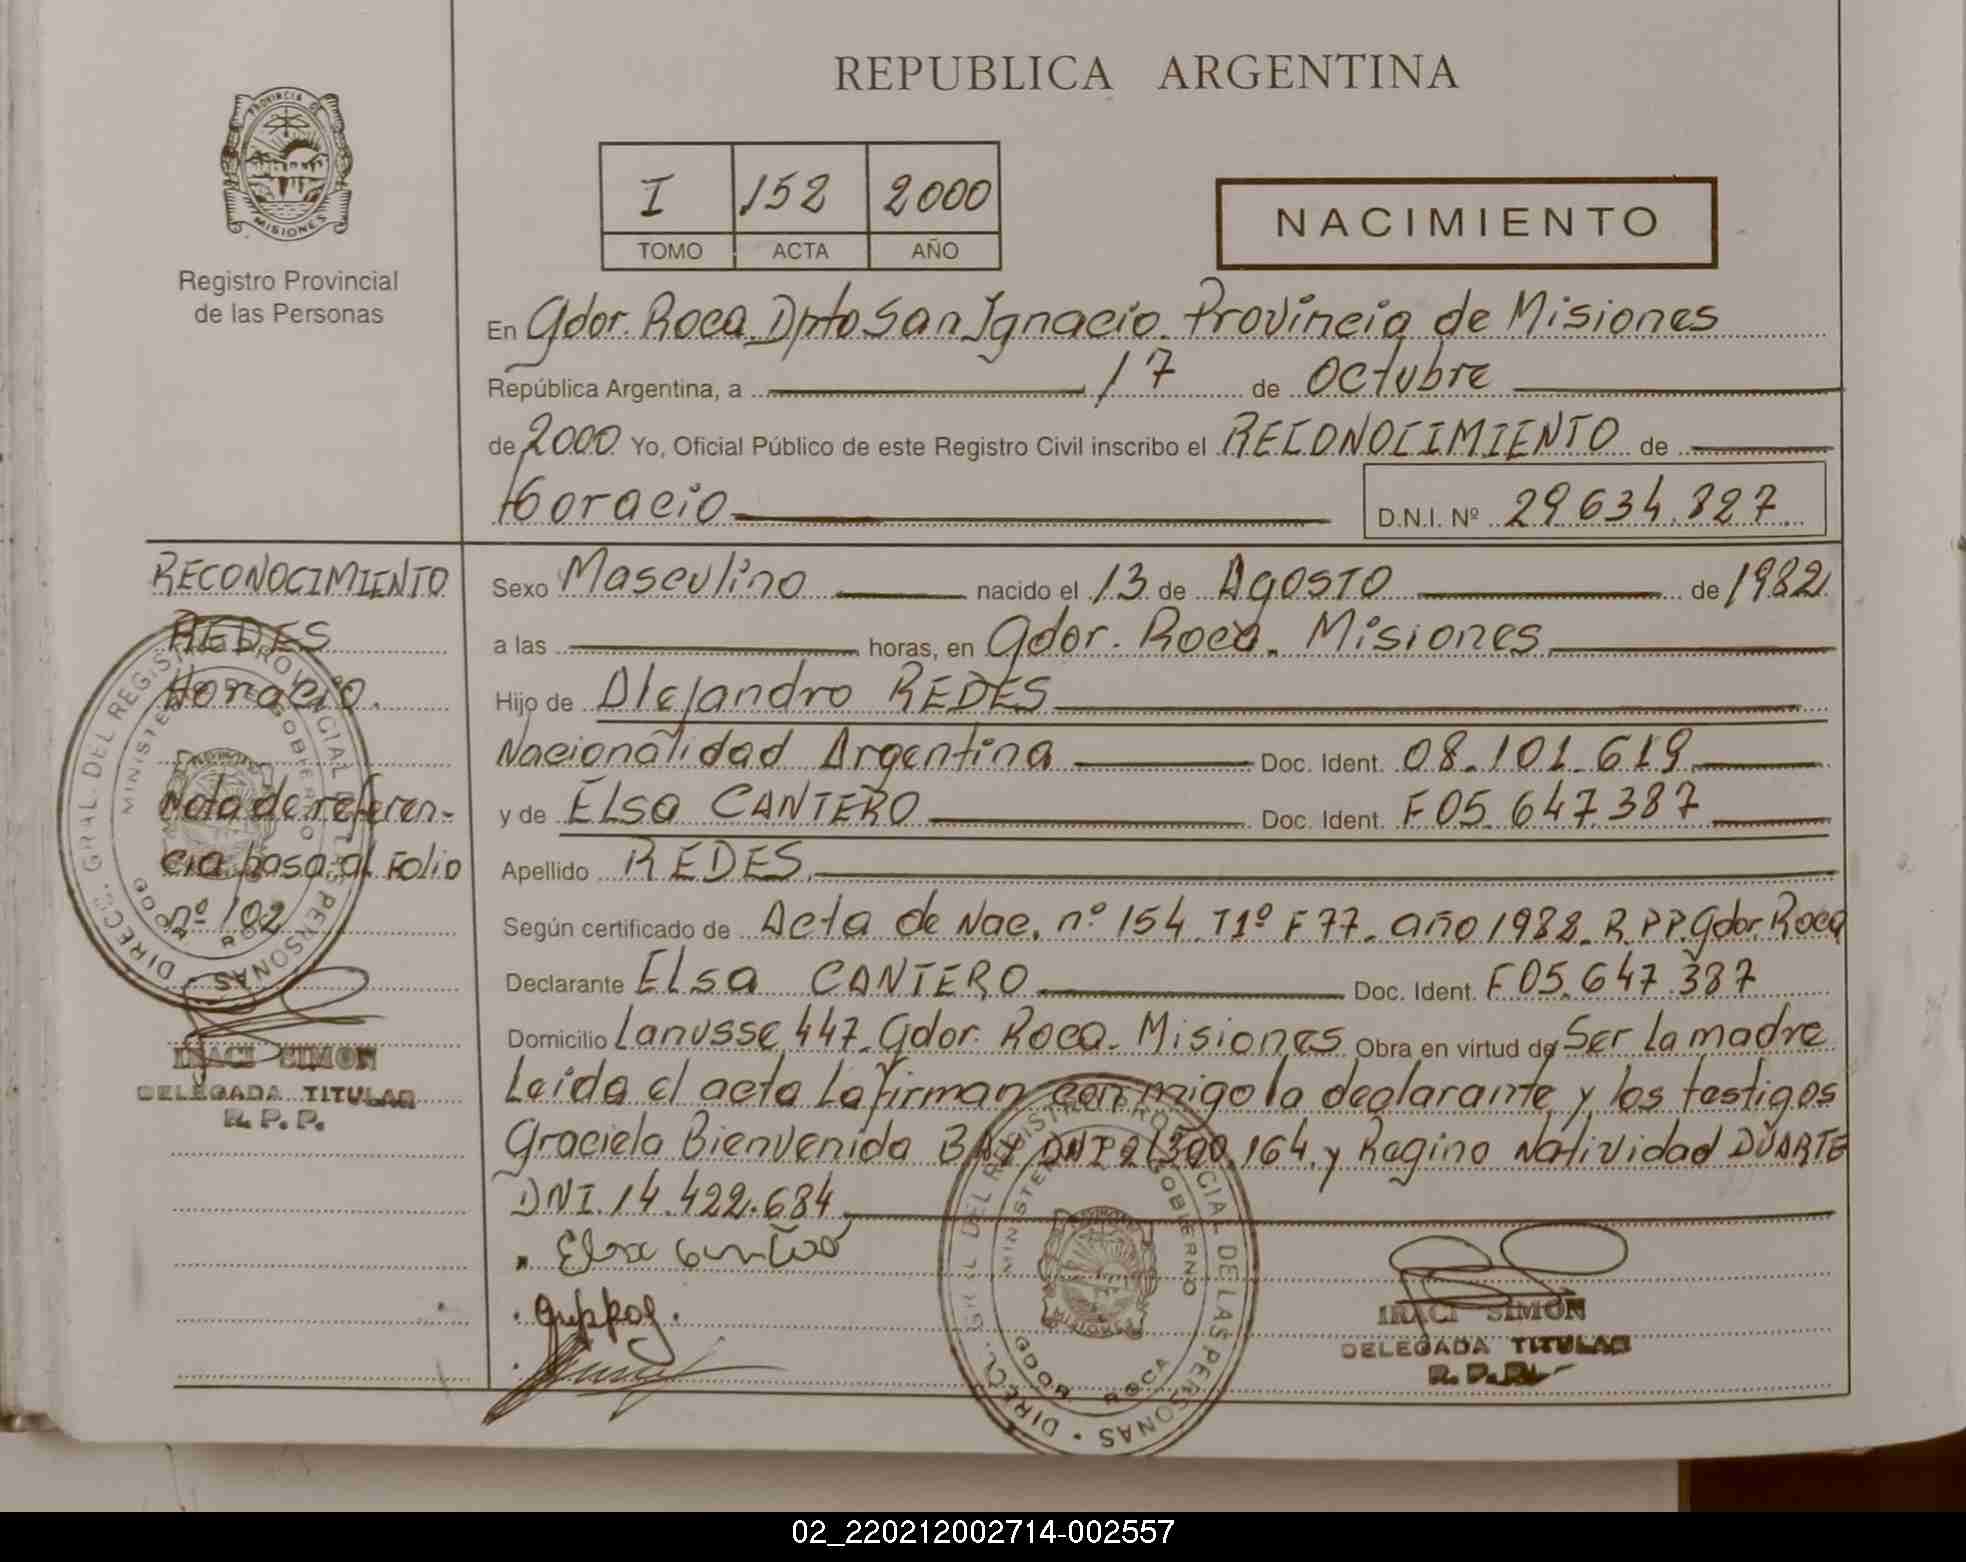 REPUBLICA ARGENTINA
PROVINCIA DE
MISIONES
Registro Provincial
de las Personas
I 152 2000
TOMO ACTA AÑO
NACIMIENTO
En Gdor. Roca. Dpto San Ignacio. Provincia de Misiones
República Argentina, a 17 de Octubre
de 2000 Yo, Oficial Público de este Registro Civil inscribo el RECONOCIMIENTO de
Horacio D.N.I. Nº 29634.827
Sexo Masculino nacido el 13 de AgOSTO de 1982
a las horas, en Gdor. Roca. Misiones
Hijo de Alejandro REDES
Nacionalidad Argentina Doc. Ident. 08.101.619
y de ELsa CANTERO Doc. Ident. F05.647.387
Apellido REDES
Según certificado de Acta de Nac. nº 154 T1º F77. año 1982. R.P.P. Gdor. Roca
Declarante ELsa CANTERO Doc. Ident. F05.647.387
Domicilio Lanusse 447. Gdor. Roca. Misiones Obra en virtud de Ser La madre
Leida el acta La firman conmigo la declarante y los testigos
Graciela Bienvenida BAY DNI 21.300.164 y Regino Natividad DUARTE
DNI. 14.422.684
RECONOCIMIENTO
REDES
Horacio.
Nota de referen-
cia pasa al Folio
nº 102
IRACI SIMON
DELEGADA TITULAR
R. P. P.
DIREC. GRAL. DEL REGISTRO PROVINCIAL DE LAS PERSONAS
MINISTERIO DE GOBIERNO
GDOR ROCA
Elsa Cantero
DIREC. GRAL. DEL REGISTRO PROVINCIAL DE LAS PERSONAS
MINISTERIO DE GOBIERNO
GDOR ROCA
IRACI SIMON
DELEGADA TITULAR
R. P. P.
02_220212002714-002557